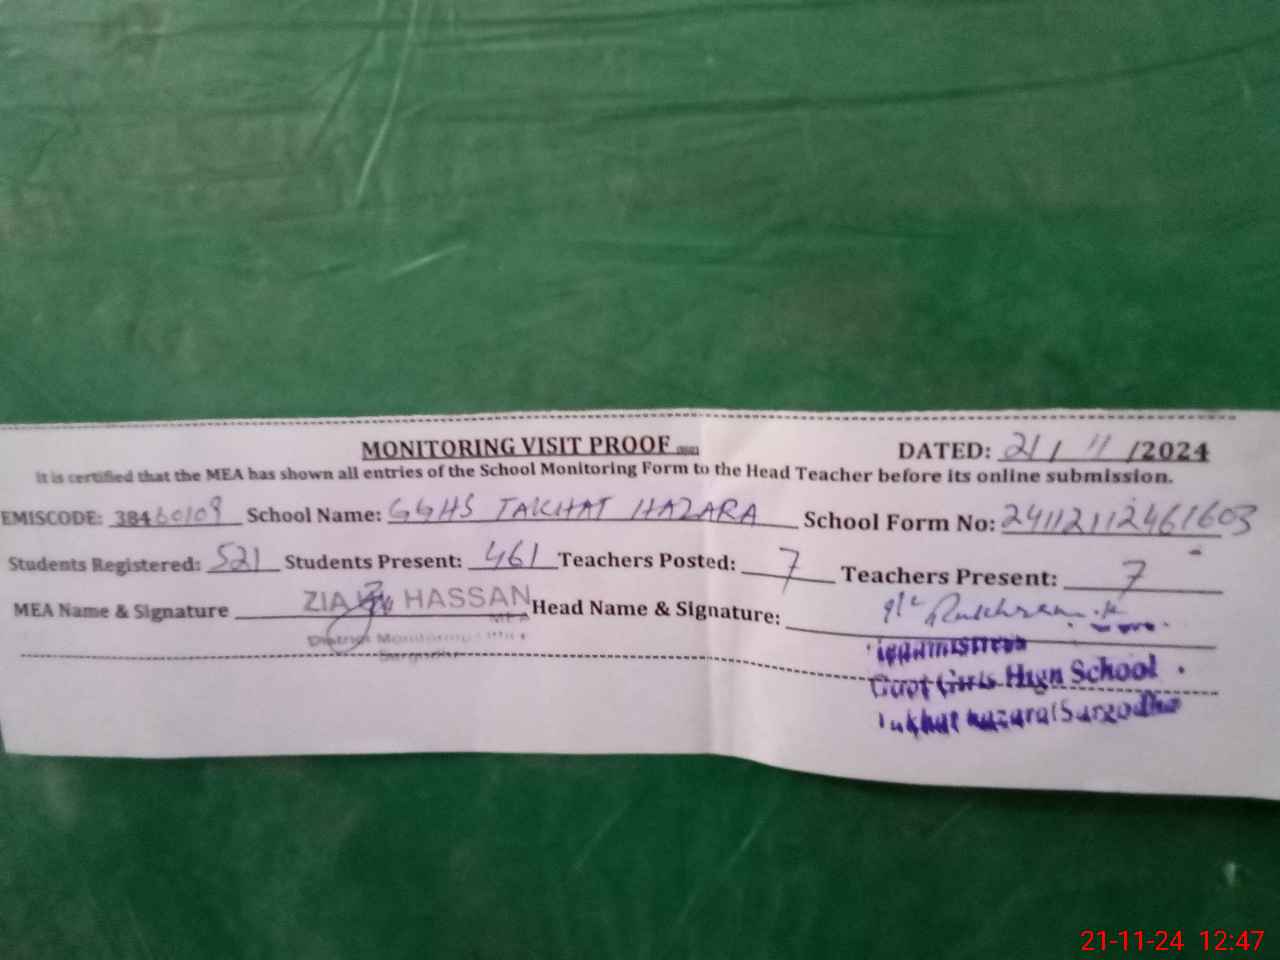 MONITORING VISIT PROOF
DATED: 21 / 11 /2024
It is certified that the MEA has shown all entries of the School Monitoring Form to the Head Teacher before its online submission.
EMISCODE: 38460109 School Name: GGHS TAKHAT HAZARA School Form No: 24112112461603
Students Registered: 521 Students Present: 461 Teachers Posted: 7 Teachers Present: 7
MEA Name & Signature ZIA HASSAN Head Name & Signature:
MEA
District Monitoring Office
Sargodha
Headmistress
Govt Girls High School
Takhat hazara (Sargodha
21-11-24 12:47